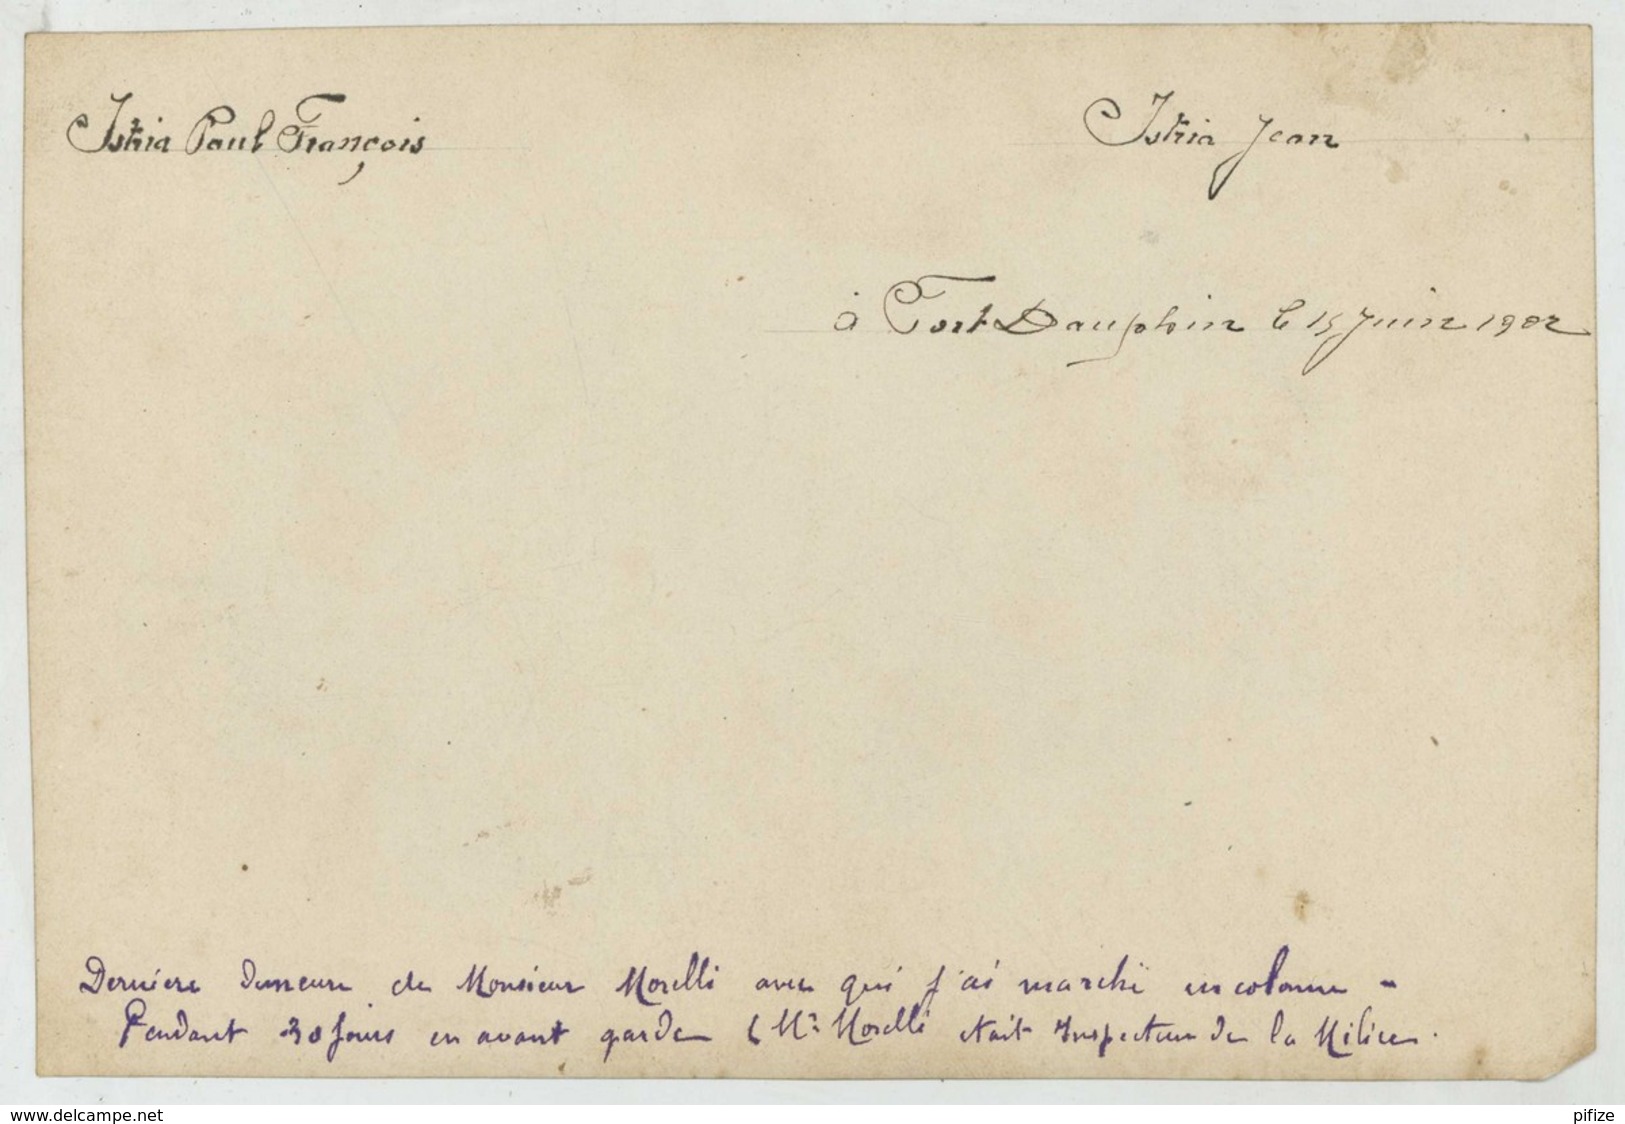 Istria Paul François
Istria Jean
à Fort Dauphin le 15 Juin 1902
Derniere demeure de Monsieur Morelli avec qui j'ai marché en colonne -
Pendant 30 jours en avant garde ( Mr Morelli etait Inspecteur de la Milice.
www.delcampe.net
pifize